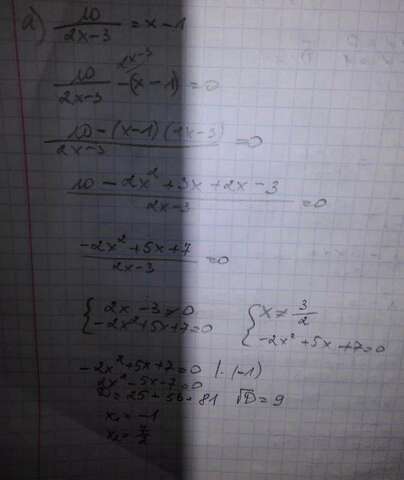 а) 10/(2x-3) = x-1
10/(2x-3) - (x-1) = 0
2x-3
(10-(x-1)(2x-3))/(2x-3) = 0
(10-2x²+3x+2x-3)/(2x-3) = 0
(-2x²+5x+7)/(2x-3) = 0
{ 2x-3≠0 { x≠3/2
-2x²+5x+7=0 -2x²+5x+7=0
-2x²+5x+7=0 |·(-1)
2x²-5x-7=0
D=25+56=81 √D=9
x₁=-1
x₂=7/2